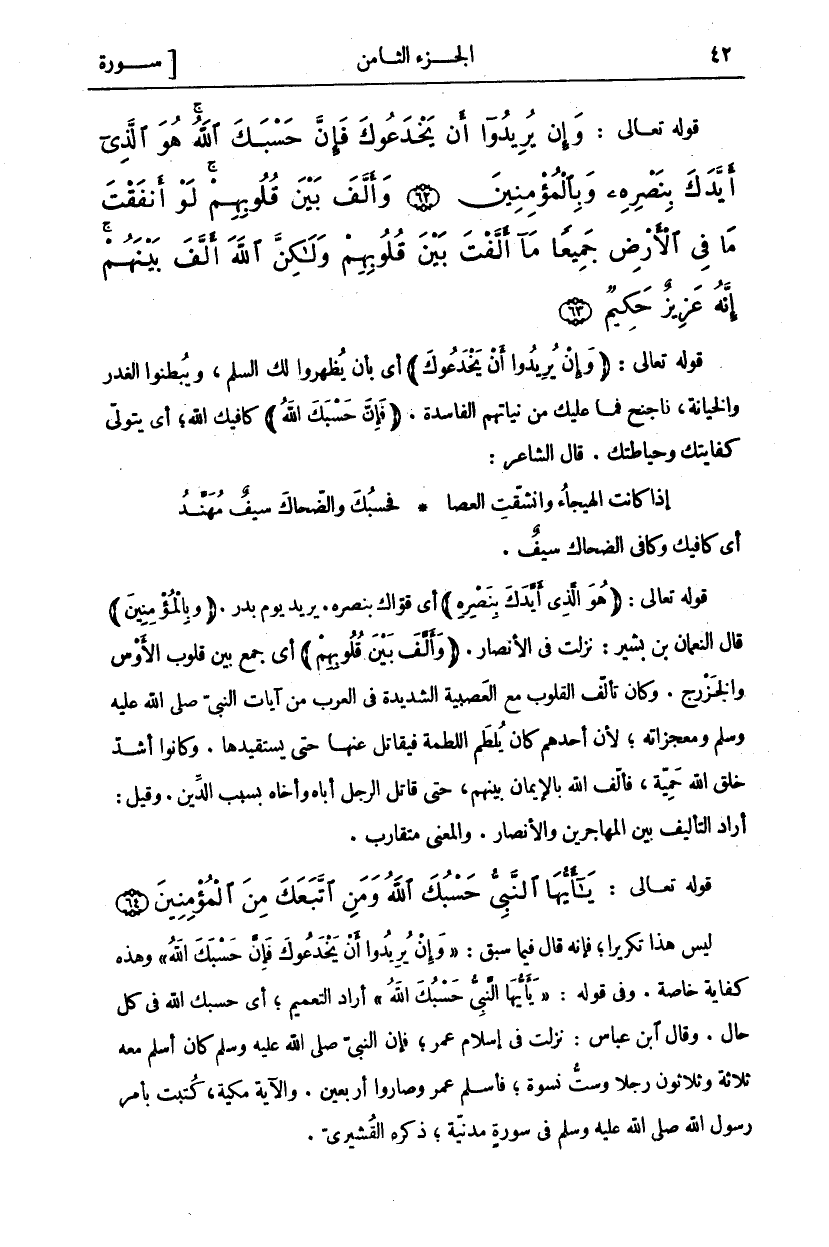 ٤٢ الجـــزء الثـامن [ ســـورة
قوله تعـالى : وَإِن يُرِيدُوٓا۟ أَن يَخْدَعُوكَ فَإِنَّ حَسْبَـكَ ٱللَّهُ ۚ هُوَ ٱلَّذِىٓ
أَيَّدَكَ بِنَصْرِهِۦ وَبِٱلْمُؤْمِنِينَ ﴿٦٢﴾ وَأَلَّفَ بَيْنَ قُلُوبِهِمْ ۚ لَوْ أَنفَقْتَ
مَا فِى ٱلْأَرْضِ جَمِيعًا مَّآ أَلَّفْتَ بَيْنَ قُلُوبِهِمْ وَلَـٰكِنَّ ٱللَّهَ أَلَّفَ بَيْنَهُمْ ۚ
إِنَّهُۥ عَزِيزٌ حَكِيمٌ ﴿٦٣﴾
قوله تعالى : ﴿وَإِنْ يُرِيدُوا أَنْ يَخْدَعُوكَ﴾ أى بأن يُظهروا لك السلم ، ويُبطنوا الغدر
والخيانة، ناجنح فمـا عليك من نياتهم الفاسدة . ﴿فَإِنَّ حَسْبَكَ اللهُ﴾ كافيك الله؛ أى يتولّى
كفايتك وحياطتك . قال الشاعر :
إذا كانت الهيجاُء وانشقّتِ العصا * فحسبُكَ والضّحاكَ سيفٌ مُهَنَّـدُ
أى كافيك وكافى الضحاك سيفٌ .
قوله تعالى : ﴿هُوَ الَّذِى أَيَّدَكَ بِنَصْرِهِ﴾ أى قوّاك بنصره. يريد يوم بدر . ﴿وبِالْمُؤْمِنِينَ﴾
قال النعمان بن بشير : نزلت فى الأنصار . ﴿وَأَلَّفَ بَيْنَ قُلُوبِهِمْ﴾ أى جمع بين قلوب الأَوْس
والخَزْرج . وكان تألّف القلوب مع العَصبية الشديدة فى العرب من آيات النبىّ صلى الله عليه
وسلم ومعجزاته ؛ لأن أحدهم كان يُلطَم اللطمة فيقاتل عنهـا حتى يستقيدها . وكانوا أشـدّ
خلق الله حَمِيّة ، فألّف الله بالإيمان بينهم، حتى قاتل الرجل أباه وأخاه بسبب الدِّين . وقيل :
أراد التأليف بين المهاجرين والأنصار . والمعنى متقارب .
قوله تعـالى : يَـٰٓأَيُّهَا ٱلنَّبِىُّ حَسْبُكَ ٱللَّهُ وَمَنِ ٱتَّبَعَكَ مِنَ ٱلْمُؤْمِنِينَ ﴿٦٤﴾
ليس هذا تكريرا؛ فإنه قال فيما سبق : « وَإِنْ يُرِيدُوا أَنْ يَخْدَعُوكَ فَإِنَّ حَسْبَكَ اللهُ» وهذه
كفاية خاصة . وفى قوله : « يَأَيُّهَا النَّبِىُّ حَسْبُكَ اللهُ » أراد التعميم ؛ أى حسبك الله فى كل
حال . وقال ٱبن عباس : نزلت فى إسلام عمر؛ فإن النبىّ صلى الله عليه وسلم كان أسلم معه
ثلاثة وثلاثون رجلا وستُّ نسوة ؛ فأسـلم عمر وصاروا أربعين . والآية مكية، كُتبت بأمر
رسول الله صلى الله عليه وسلم فى سورة مدنيّة ؛ ذكره القُشيرىّ .